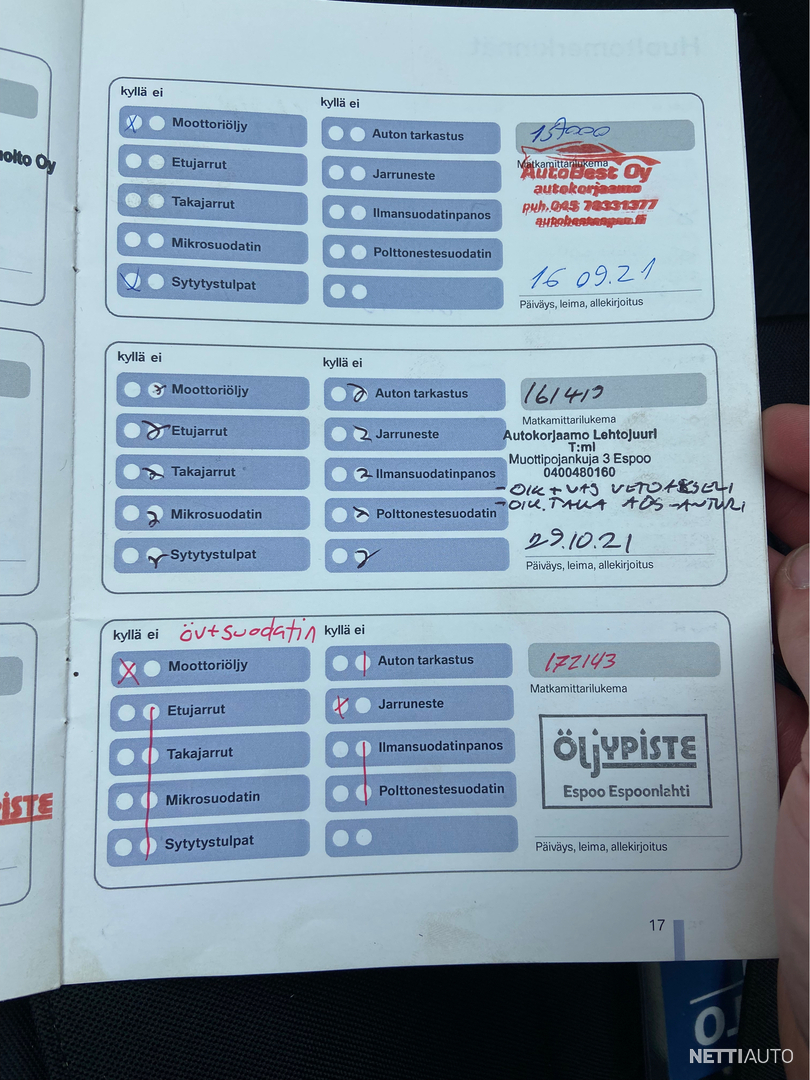 olto Oy
kyllä ei
kyllä ei
X Moottoriöljy
Etujarrut
Takajarrut
Mikrosuodatin
Sytytystulpat
Auton tarkastus
Jarruneste
Ilmansuodatinpanos
Polttonestesuodatin
157000
Matkamittarilukema
AutoBest Oy
autokorjaamo
puh.045 78331377
autobestespoo.fi
16 09.21
Päiväys, leima, allekirjoitus
kyllä ei
kyllä ei
Moottoriöljy
Etujarrut
Takajarrut
Mikrosuodatin
Sytytystulpat
Auton tarkastus
Jarruneste
Ilmansuodatinpanos
Polttonestesuodatin
161419
Matkamittarilukema
Autokorjaamo Lehtojuuri
T:mi
Muottipojankuja 3 Espoo
0400480160
- OIK + VAS VETOAKSELI
- OIK. TAKA ABS-ANTURI
29.10.21
Päiväys, leima, allekirjoitus
kyllä ei övtsuodatin
kyllä ei
X Moottoriöljy
Etujarrut
Takajarrut
Mikrosuodatin
Sytytystulpat
Auton tarkastus
X Jarruneste
Ilmansuodatinpanos
Polttonestesuodatin
172143
Matkamittarilukema
ÖLJYPISTE
Espoo Espoonlahti
Päiväys, leima, allekirjoitus
PISTE
17
NETTIAUTO